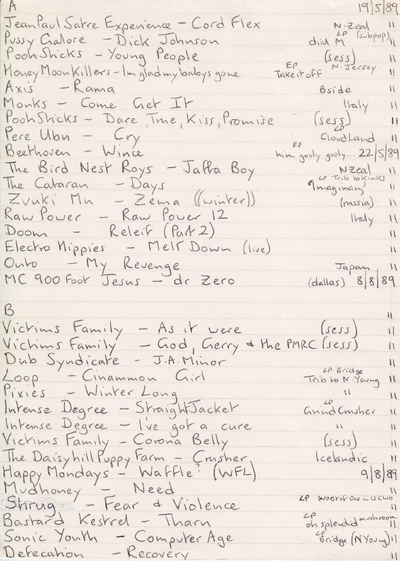 A 19/5/89
JeanPaul Satre Experience - Cord Flex N-Zeal "
Pussy Galore - Dick Johnson LP (subpop) dial M "
Pooh Sticks - Young People (sess) "
Honey Moon Killers - Im glad my babys gone EP Take it off N. Jersey "
Axis - Rama Bside "
Monks - Come Get It Italy "
Pooh Sticks - Dare, True, Kiss, Promise (sess) "
Pere Ubu - Cry LP Cloudland "
Beethoven - Wince EP him gooly gooly... 22/5/89
The Bird Nest Roys - Jaffa Boy NZeal "
The Cataran - Days LP Trib to kinks "Imaginary "
Zvuki Mu - Zema ((winter)) (russia) "
Raw Power - Raw Power 12 Italy "
Doom - Releif (Part 2) "
Electro Hippies - Melt Down (live) "
Outo - My Revenge Japan "
MC 900 Foot Jesus - dr Zero (dallas) 8/8/89
B "
Victims Family - As it were (sess) "
Victims Family - God, Gerry & the PMRC (sess) "
Dub Syndicate - J.A. Minor "
Loop - Cinammon Girl LP Bridge Trib to N Young "
Pixies - Winter Long " "
Intense Degree - StraightJacket LP Grind Crusher "
Intense Degree - I've got a cure " "
Victims Family - Corona Belly (sess) "
The Daisyhill Puppy Farm - Crusher Icelandic "
Happy Mondays - Waffle? (WFL) 9/8/89
Mudhoney - Need "
Shrug - Fear & Violence LP "
Bastard Kestrel - Tharn LP oh splendid mushroom "
Sonic Youth - Computer Age LP Bridge (N Young) "
Defecation - Recovery "